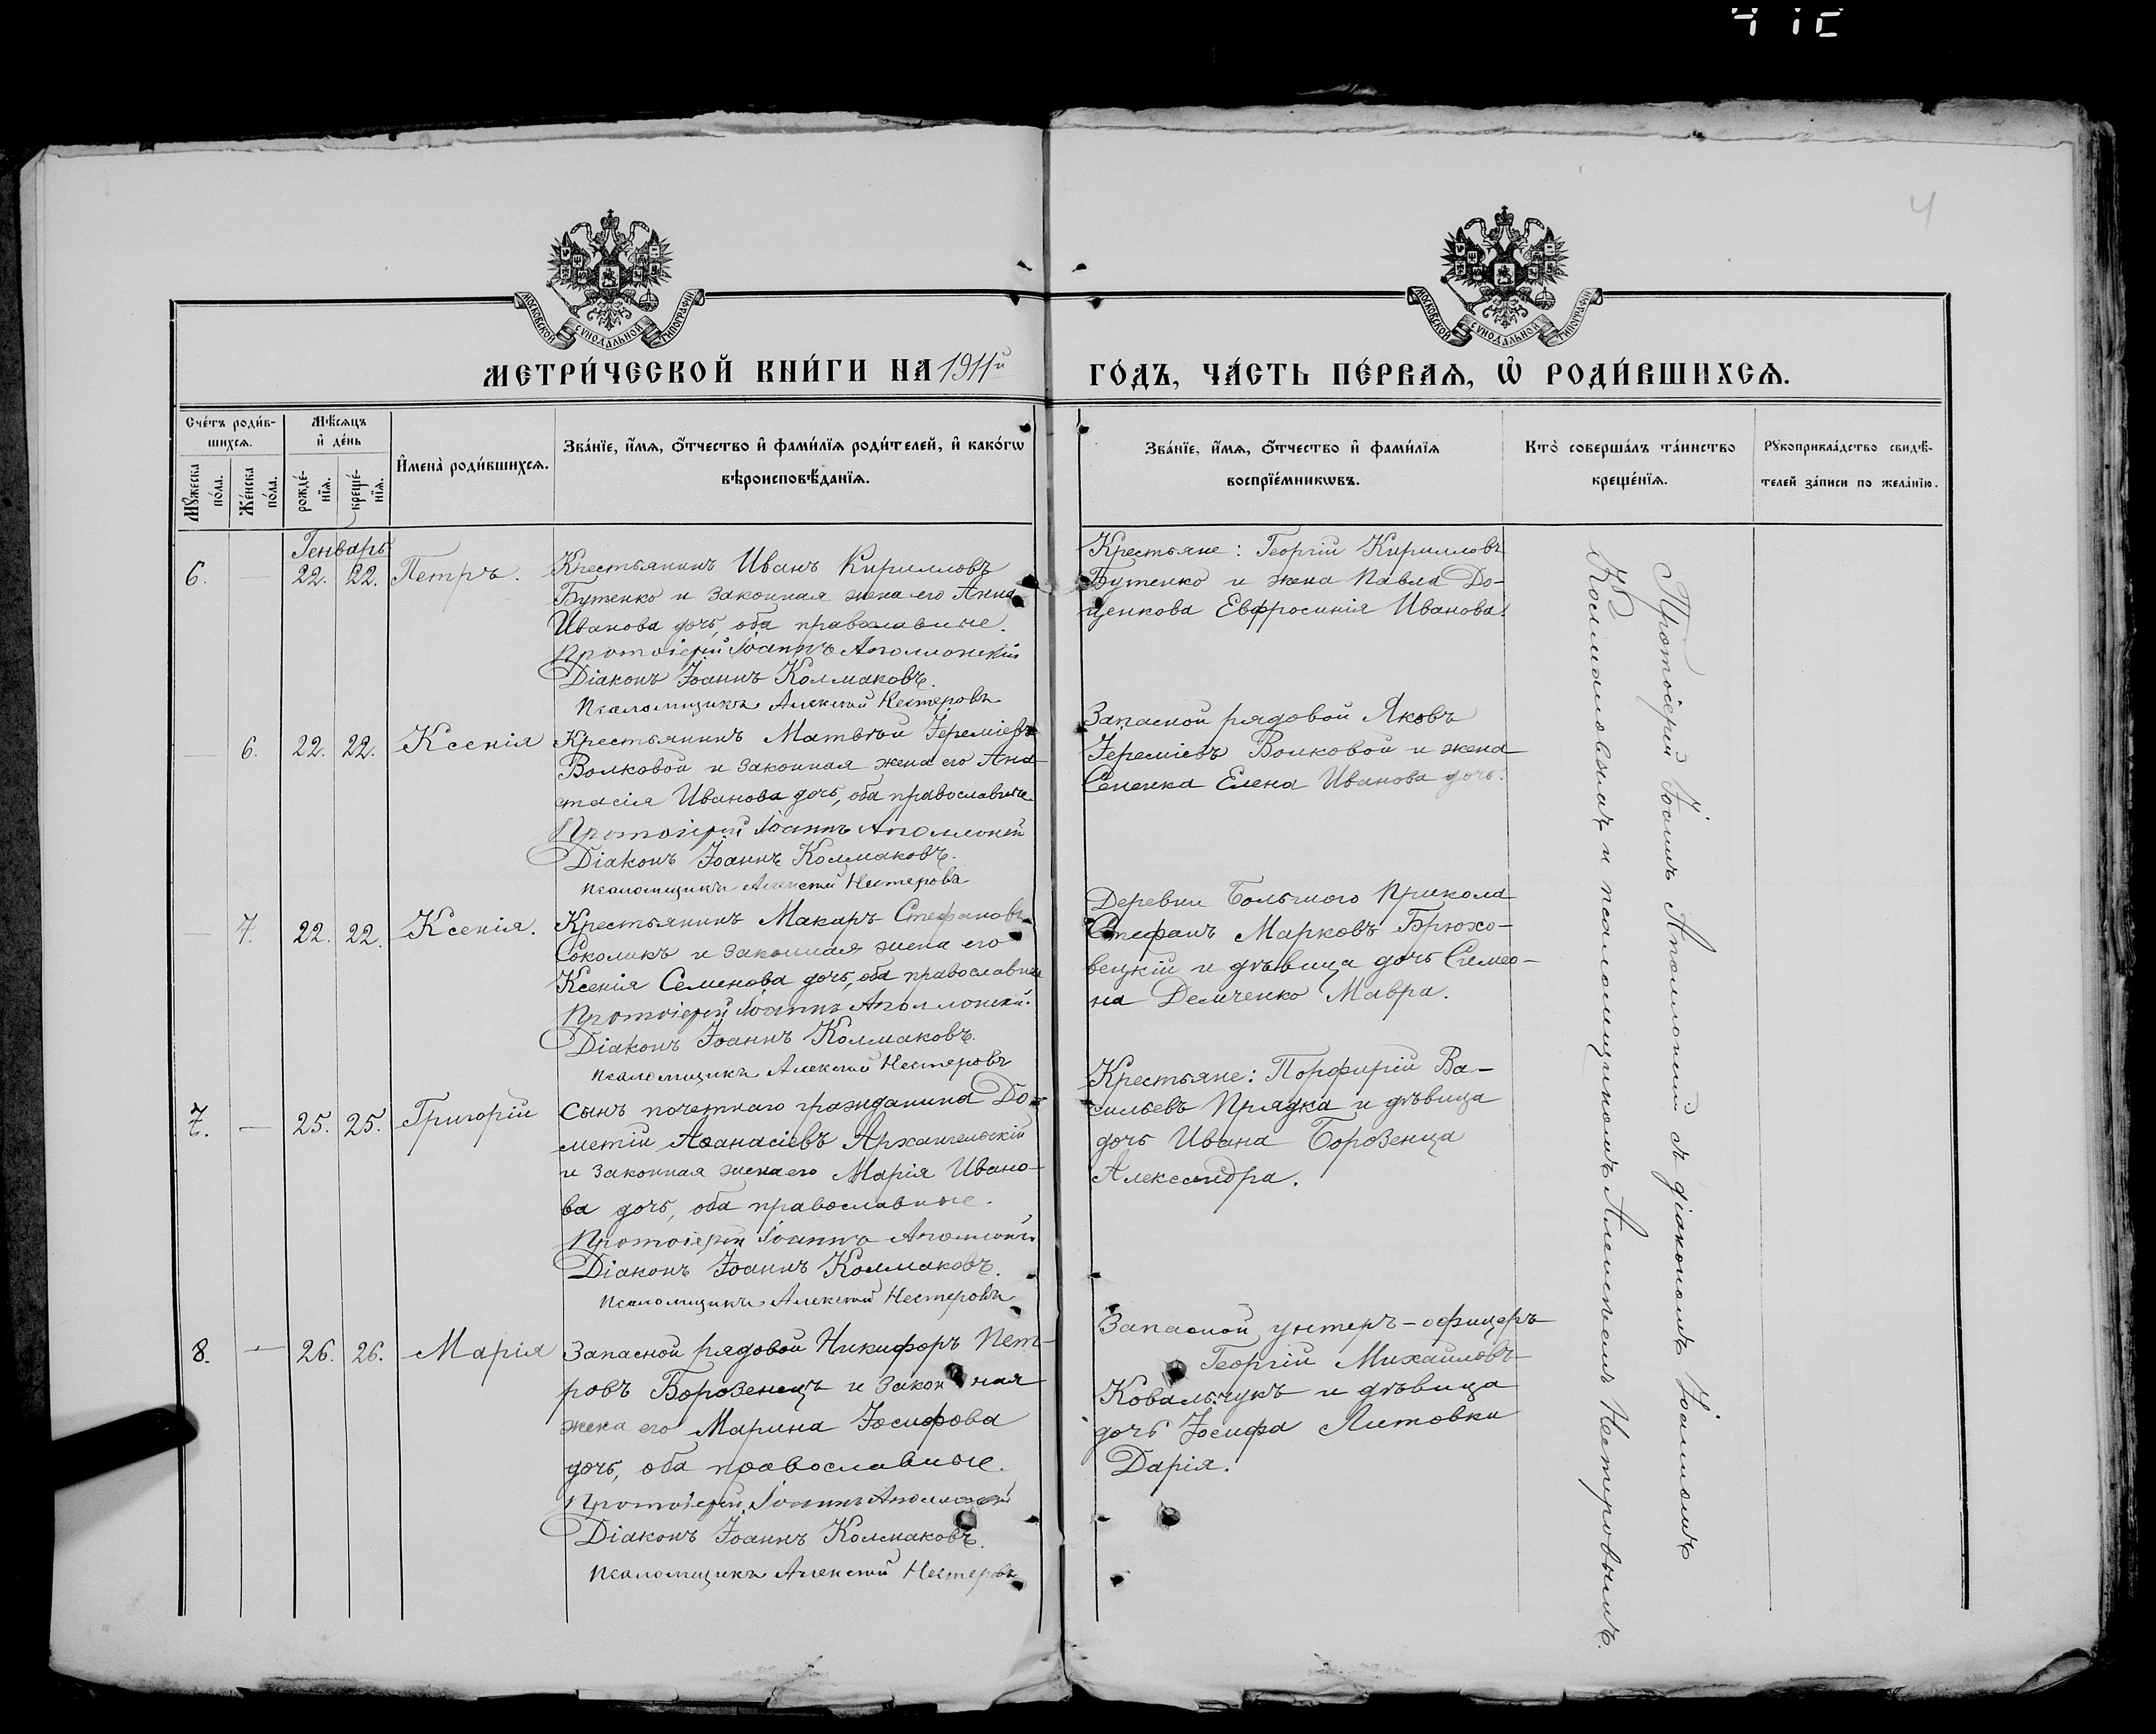 4
МОСКОВСКОЙ СУНОДАЛЬНОЙ ТИПОГРАФІИ
МОСКОВСКОЙ СУНОДАЛЬНОЙ ТИПОГРАФІИ
МЕТРИ́ЧЕСКОЙ КНИ́ГИ НА 1911й ГО́ДЪ, ЧА́СТЬ ПЕ́РВАѦ, Ѡ҆ РОДИ́ВШИХСѦ.
Сче́тъ роди́в-
шихсѧ.
Мꙋ́жеска
по́ла.
Же́нска
по́ла.
Мѣ́сѧцъ
и҆ де́нь
рожде́-
нїѧ.
креще́-
нїѧ.
И҆мена̀ роди́вшихсѧ.
Зва́нїе, и҆́мѧ, ѻ҆́тчество и҆ фами́лїѧ роди́телей, и҆ како́гѡ
вѣроисповѣ́данїѧ.
Зва́нїе, и҆́мѧ, ѻ҆́тчество и҆ фами́лїѧ
воспрїе́мникѡвъ.
Кто̀ соверша́лъ та́инство
креще́нїѧ.
Рꙋкоприкла́дство свидѣ́-
телей за́писи по жела́нїю.
Генварь
6. — 22. 22. Петръ.
Крестьянинъ Иванъ Кирилловъ
Бутенко и законная жена его Анна
Иванова дочь, оба православные.
Протоіерей Іоаннъ Аполлонскій
Діаконъ Іоаннъ Колмаковъ.
Псаломщикъ Алексѣй Нестеровъ
Крестьяне: Георгій Кирилловъ
Бутенко и жена Павла До-
ценкова Евфросинія Иванова.
— 6. 22. 22. Ксенія
Крестьянинъ Матвѣй Іереміевъ
Волковой и законная жена его Ана-
стасія Иванова дочь, оба православные
Протоіерей Іоаннъ Аполлонскій
Діаконъ Іоаннъ Колмаковъ.
Псаломщикъ Алексѣй Нестеровъ
Запасной рядовой Яковъ
Іереміевъ Волковой и жена
Сененка Елена Иванова дочь.
— 7. 22. 22. Ксенія.
Крестьянинъ Макаръ Стефановъ
Соколикъ и законная жена его
Ксенія Семенова дочь, оба православные
Протоіерей Іоаннъ Аполлонскій.
Діаконъ Іоаннъ Колмаковъ.
Псаломщикъ Алексѣй Нестеровъ
Деревни Большого Прикола
Стефанъ Марковъ Брюхо-
вецкій и дѣвица дочь Симео-
на Демченко Мавра.
7. — 25. 25. Григорій
Сынъ почетнаго гражданина До-
метій Аѳанасіевъ Архангельскій
и законная жена его Марія Ивано-
ва дочь, оба православные.
Протоіерей Іоаннъ Аполлонскій
Діаконъ Іоаннъ Колмаковъ.
Псаломщикъ Алексѣй Нестеровъ
Крестьяне: Порфирій Ва-
сильевъ Прядка и дѣвица
дочь Ивана Борозенца
Александра.
8. — 26. 26. Марія
Запасной рядовой Никифоръ Пет-
ровъ Борозенецъ и законная
жена его Марина Іосифова
дочь, оба православные.
Протоіерей Іоаннъ Аполлонскій
Діаконъ Іоаннъ Колмаковъ.
Псаломщикъ Алексѣй Нестеровъ
Запасной унтеръ-офицеръ
Георгій Михайловъ
Ковальчукъ и дѣвица
дочь Іосифа Литовки
Дарія.
Протоіерей Іоаннъ Аполлонскій съ діакономъ Іоанномъ
Колмаковымъ и псаломщикомъ Алексѣемъ Нестеровымъ.